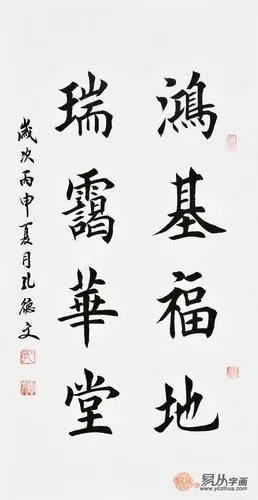 鴻基福地
瑞靄華堂
歲次丙申夏月孔德文
易从字画
www.yczihua.com